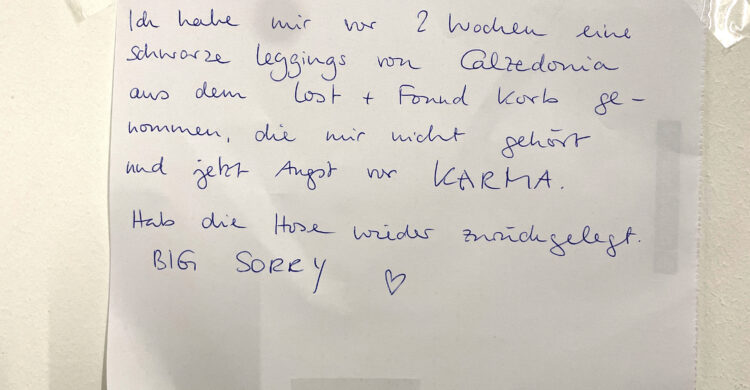 Ich habe mir vor 2 Wochen eine
schwarze leggings von Calzedonia
aus dem Lost + Found Korb ge-
nommen, die mir nicht gehört
und jetzt Angst vor KARMA.
Hab die Hose wieder zurückgelegt.
BIG SORRY ♡